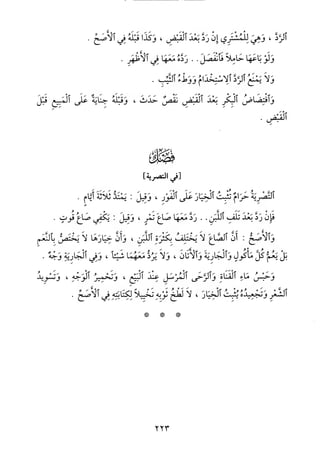 الرَّدَّ ، وَهِيَ لِلْمُشْتَرِي إِنْ رَدَّ بَعْدَ الْقَبْضِ ، وَكَذَا قَبْلَهُ فِي الْأَصَحِّ .
وَلَوْ بَاعَهَا حَامِلاً فَانْفَصَلَ .. رَدَّهُ مَعَهَا فِي الْأَظْهَرِ .
وَلاَ يَمْنَعُ الرَّدَّ الِاسْتِخْدَامُ وَوَطْءُ الثَّيِّبِ .
وَاقْتِضَاضُ الْبِكْرِ بَعْدَ الْقَبْضِ نَقْصٌ حَدَثَ ، وَقَبْلَهُ جِنَايَةٌ عَلَى الْمَبِيعِ قَبْلَ
الْقَبْضِ .
فَصْلٌ
[في التصرية]
التَّصْرِيَةُ حَرَامٌ تُثْبِتُ الْخِيَارَ عَلَى الْفَوْرِ ، وَقِيلَ : يَمْتَدُّ ثَلاَثَةَ أَيَّامٍ .
فَإِنْ رَدَّ بَعْدَ تَلَفِ اللَّبَنِ .. رَدَّ مَعَهَا صَاعَ تَمْرٍ ، وَقِيلَ : يَكْفِي صَاعُ قُوتٍ .
وَالْأَصَحُّ : أَنَّ الصَّاعَ لاَ يَخْتَلِفُ بِكَثْرَةِ اللَّبَنِ ، وَأَنَّ خِيَارَهَا لاَ يَخْتَصُّ بِالنَّعَمِ
بَلْ يَعُمُّ كُلَّ مَأْكُولٍ وَالْجَارِيَةَ وَالْأَتَانَ ، وَلاَ يَرُدُّ مَعَهُمَا شَيْئاً ، وَفِي الْجَارِيَةِ وَجْهٌ .
وَحَبْسُ مَاءِ الْقَنَاةِ وَالرَّحَى الْمُرْسَلِ عِنْدَ الْبَيْعِ ، وَتَحْمِيرُ الْوَجْهِ ، وَتَسْوِيدُ
الشَّعْرِ وَتَجْعِيدُهُ يُثْبِتُ الْخِيَارَ ، لاَ لَطْخُ ثَوْبِهِ تَخْيِيلاً لِكِتَابَتِهِ فِي الْأَصَحِّ .
* * *
٢٢٣